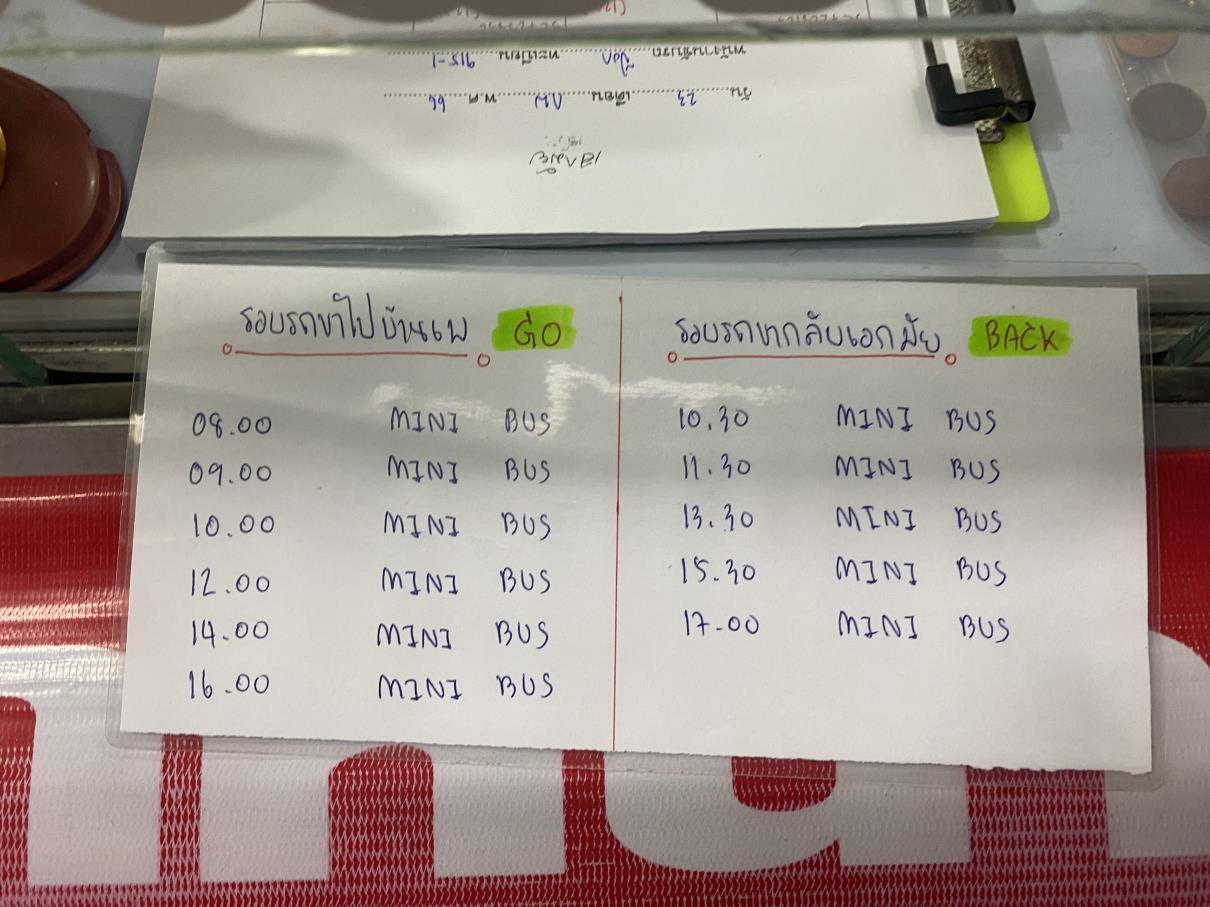 พนักงานขับรถ ป๊อก ทะเบียน 915-1
วัน 23 เดือน กพ พ.ศ. 66
รอบรถขาไปบ้านเพ GO
08.00 MINI BUS
09.00 MINI BUS
10.00 MINI BUS
12.00 MINI BUS
14.00 MINI BUS
16.00 MINI BUS
รอบรถขากลับเอกมัย BACK
10.30 MINI BUS
11.30 MINI BUS
13.30 MINI BUS
15.30 MINI BUS
17-00 MINI BUS